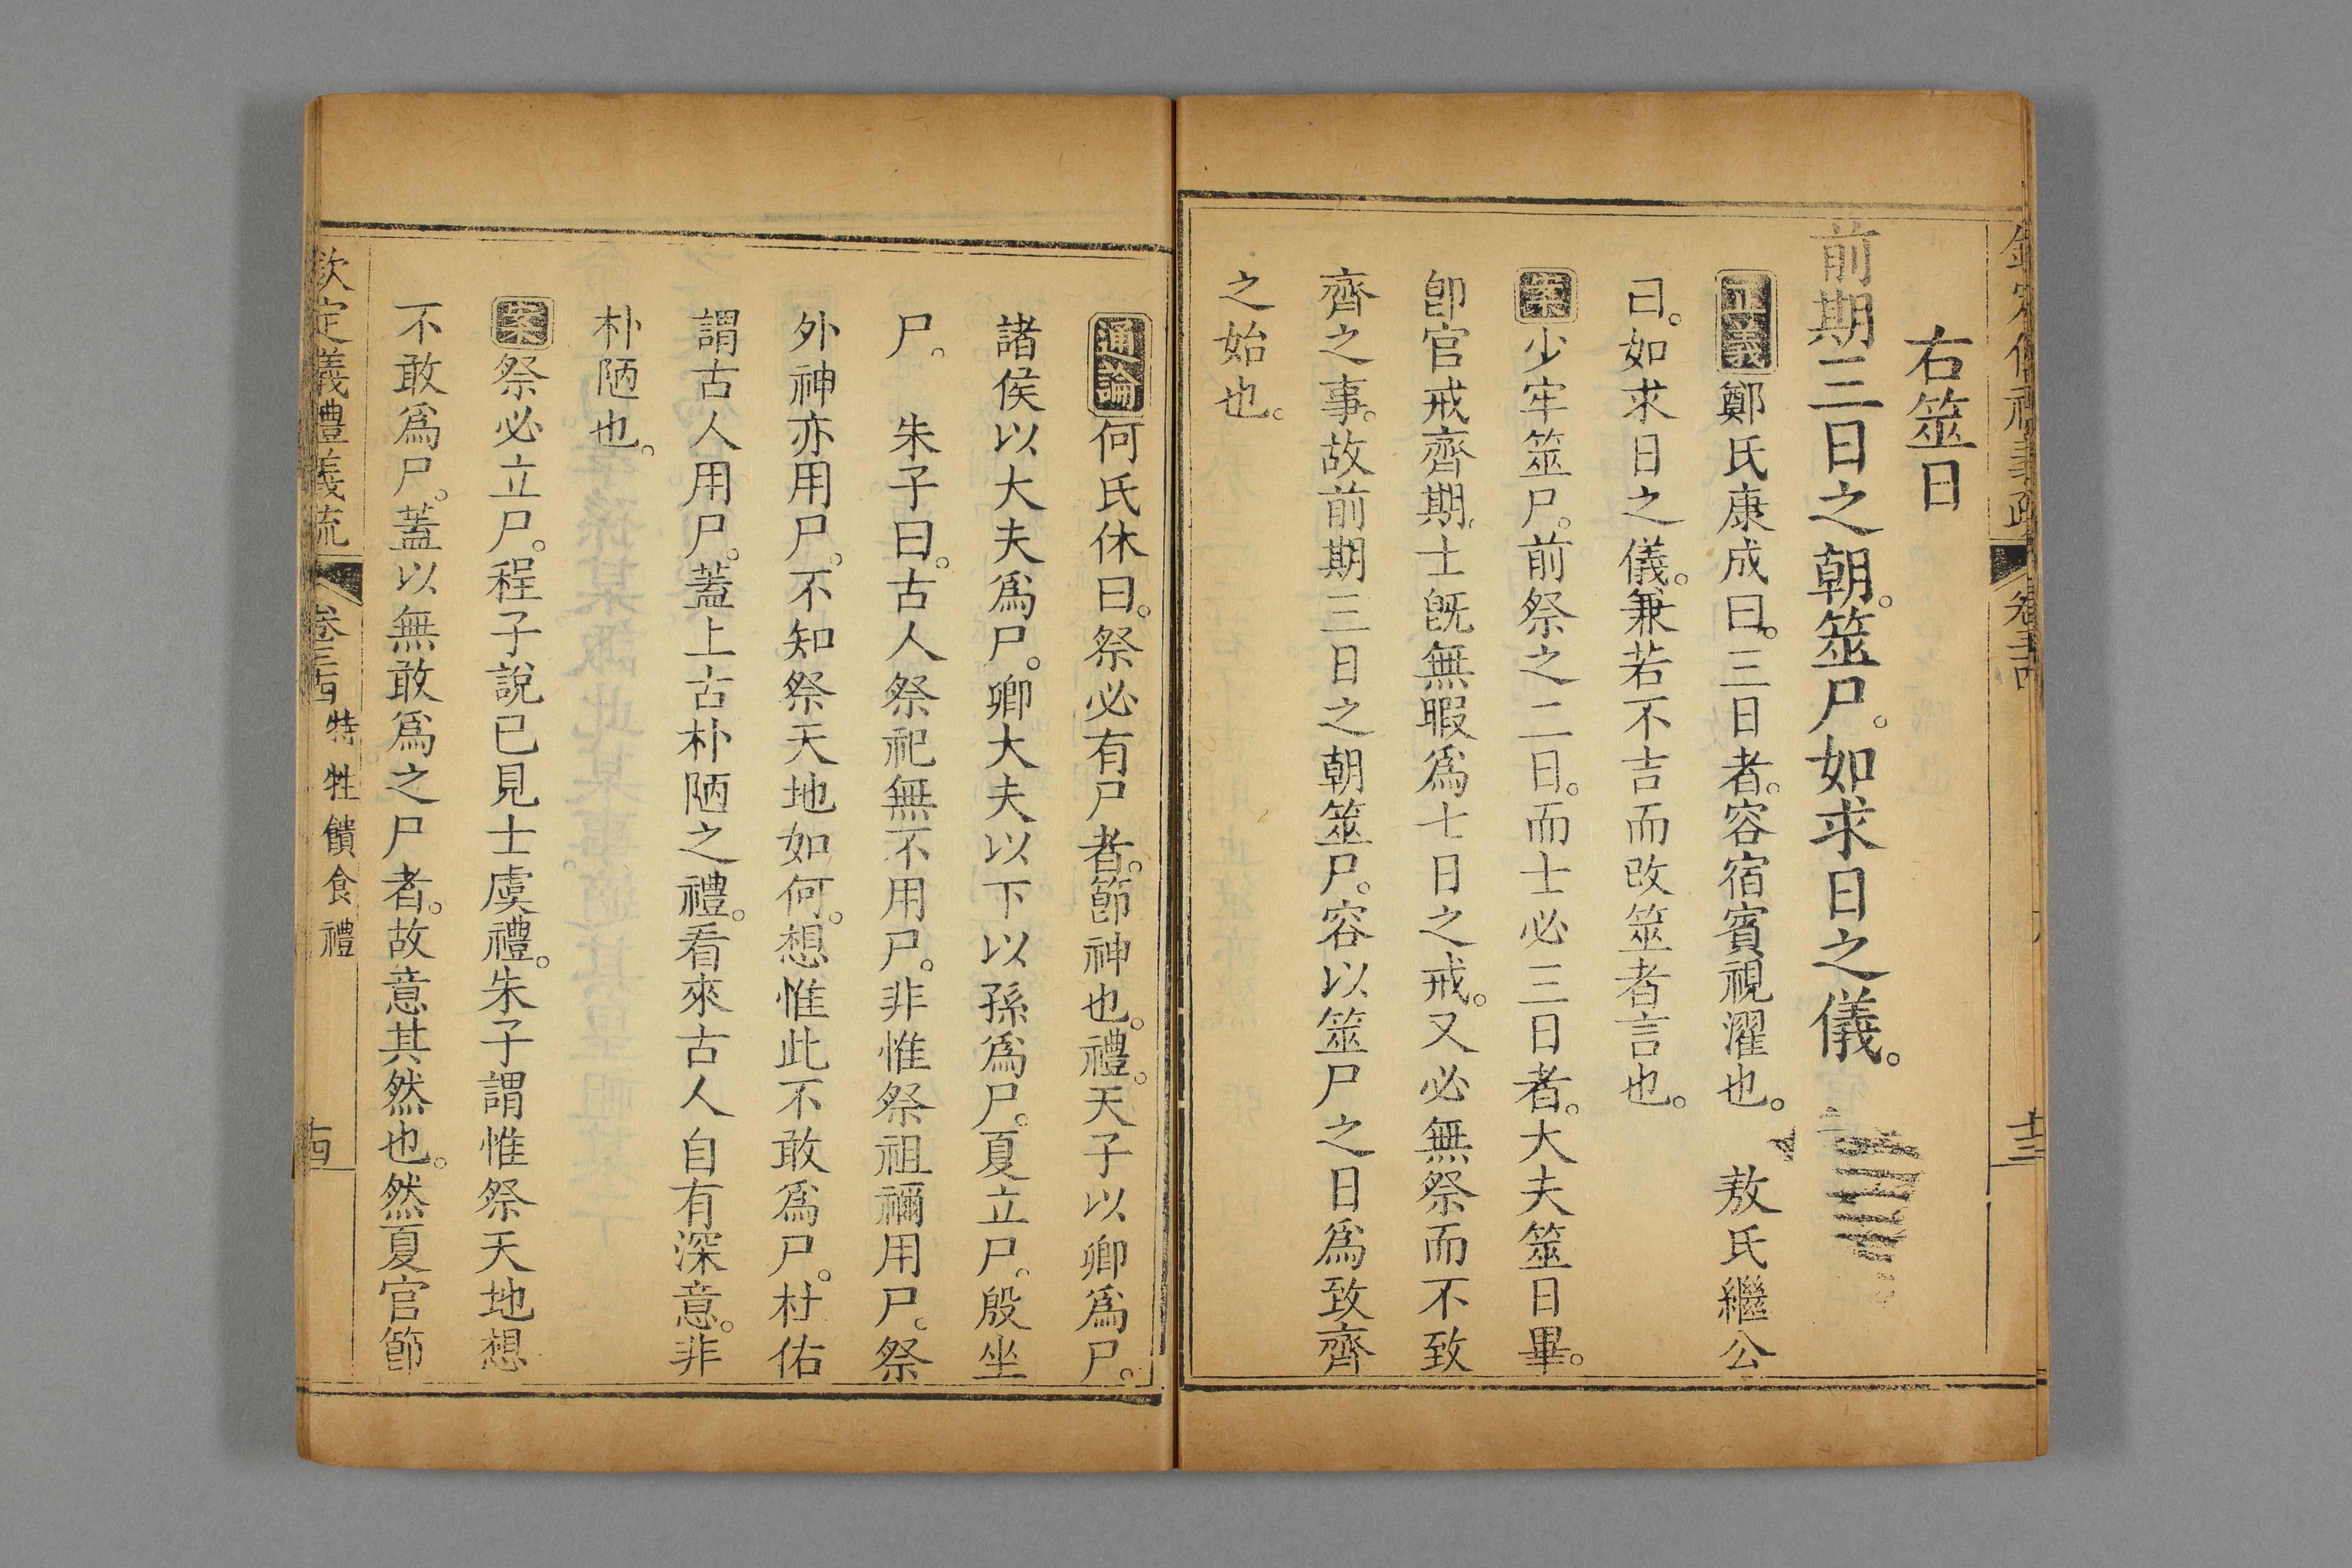 右筮日
前期三日之朝。筮尸。如求日之儀。
正義鄭氏康成曰。三日者。容宿賓視濯也。　敖氏繼公
曰。如求日之儀。兼若不吉而改筮者言也。
案少牢筮尸。前祭之二日。而士必三日者。大夫筮日畢。
卽官戒齊期。士旣無暇爲七日之戒。又必無祭而不致
齊之事。故前期三日之朝筮尸。容以筮尸之日爲致齊
之始也。
通論何氏休曰。祭必有尸者。節神也。禮。天子以卿爲尸。
諸侯以大夫爲尸。卿大夫以下以孫爲尸。夏立尸。殷坐
尸。　朱子曰。古人祭祀無不用尸。非惟祭祖禰用尸。祭
外神亦用尸。不知祭天地如何。想惟此不敢爲尸。杜佑
謂古人用尸。蓋上古朴陋之禮。看來古人自有深意。非
朴陋也。
案祭必立尸。程子說已見士虞禮。朱子謂惟祭天地想
不敢爲尸。蓋以無敢爲之尸者。故意其然也。然夏官節
欽定儀禮義疏　卷三十四　特牲饋食禮　十四